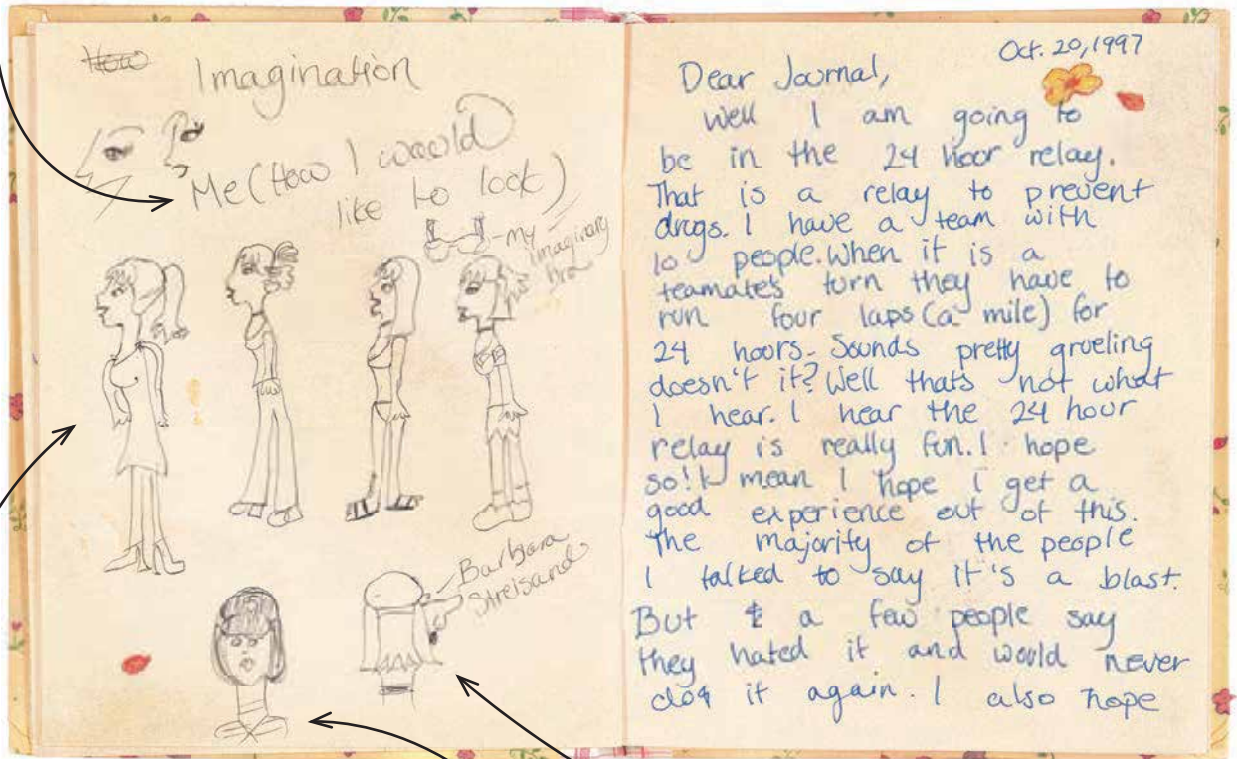 How
Imagination
Me (How I would
like to look)
- my
imaginary
bra
Barbara
Streisand
Oct. 20, 1997
Dear Journal,
Well I am going to
be in the 24 hoor relay.
That is a relay to prevent
drugs. I have a team with
10 people. When it is a
teamate's turn they have to
run four laps (a mile) for
24 hoors. Sounds pretty grueling
doesn't it? Well thats not what
I hear. I hear the 24 hour
relay is really fun. I hope
so! I mean I hope i get a
good experience out of this.
The majority of the people
I talked to say it's a blast.
But a few people say
they hated it and would never
do it again. I also hope